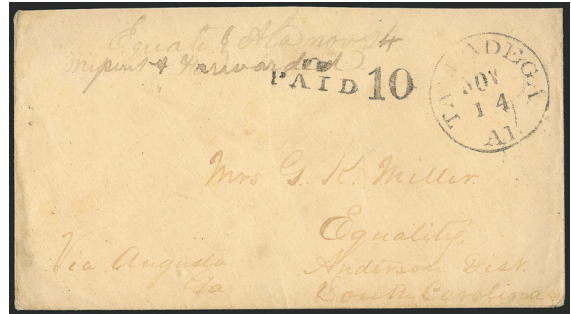 Equality Ala Nov 24
missent & Forwarded
PAID 10
TALLADEGA
NOV
14
Al.
Mrs G. K. Miller
Equality,
Anderson Dist.
South Carolina
Via Augusta
Ga